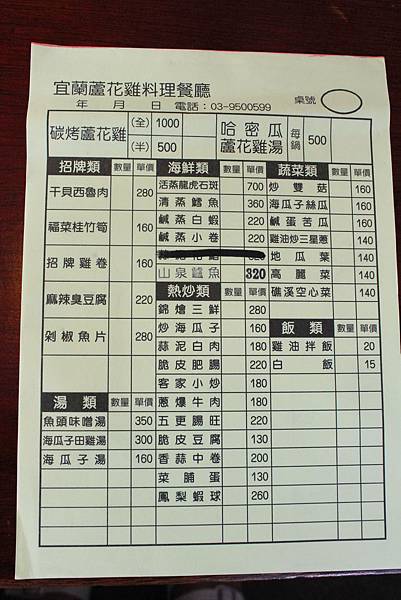 宜蘭蘆花雞料理餐廳
年 月 日 電話：03-9500599 桌號
碳烤蘆花雞 (全) 1000
(半) 500
哈密瓜蘆花雞湯 每鍋 500
招牌類 數量 單價
干貝西魯肉 280
福菜桂竹筍 160
招牌雞卷 160
麻辣臭豆腐 220
剁椒魚片 280
湯類 數量 單價
魚頭味噌湯 350
海瓜子田雞湯 300
海瓜子湯 160
海鮮類 數量 單價
活蒸龍虎石斑 700
清蒸鱈魚 360
鹹蒸白蝦 220
鹹蒸小卷 220
山泉鱸魚 320
熱炒類 數量 單價
錦燴三鮮 280
炒海瓜子 160
蒜泥白肉 180
脆皮肥腸 220
客家小炒 180
蔥爆牛肉 180
五更腸旺 220
脆皮豆腐 130
香蒜中卷 200
菜脯蛋 130
鳳梨蝦球 260
蔬菜類 數量 單價
炒雙菇 160
海瓜子絲瓜 160
鹹蛋苦瓜 160
雞油炒三星蔥 140
地瓜葉 140
高麗菜 140
礁溪空心菜 140
飯類 數量 單價
雞油拌飯 20
白飯 15